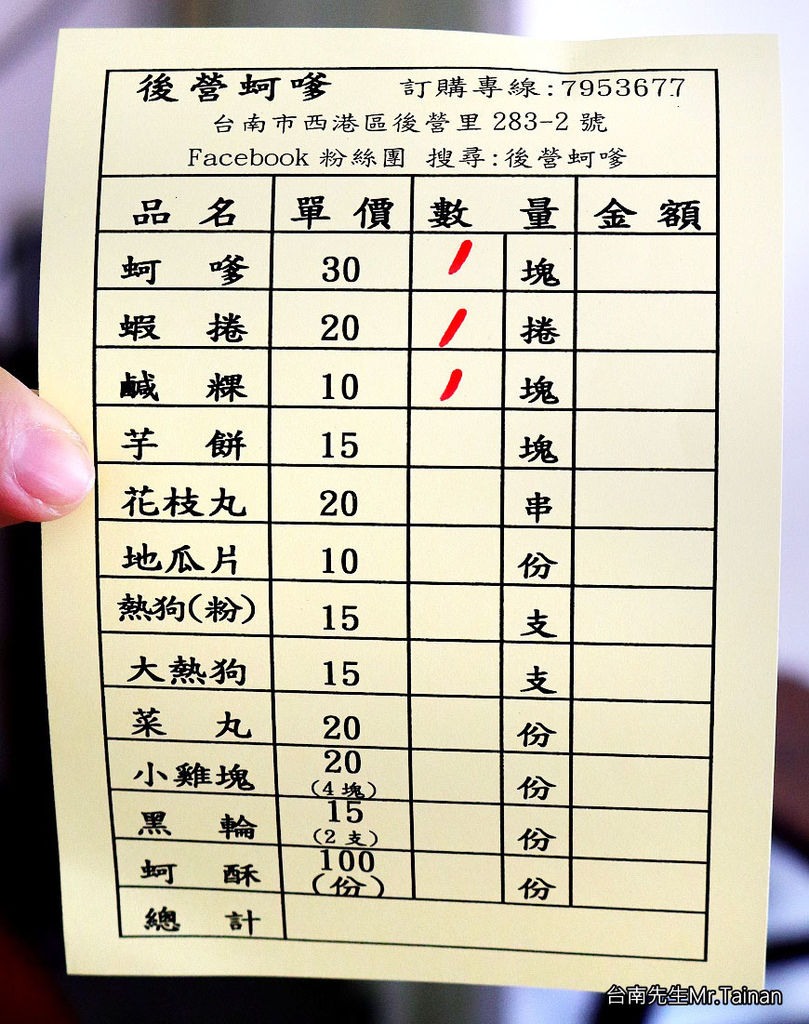 後營蚵嗲 訂購專線:7953677
台南市西港區後營里 283-2 號
Facebook 粉絲團 搜尋:後營蚵嗲
品名 單價 數量 金額
蚵嗲 30 塊
蝦捲 20 捲
鹹粿 10 塊
芋餅 15 塊
花枝丸 20 串
地瓜片 10 份
熱狗(粉) 15 支
大熱狗 15 支
菜丸 20 份
小雞塊 20 (4 塊) 份
黑輪 15 (2 支) 份
蚵酥 100 (份) 份
總計
台南先生Mr.Tainan